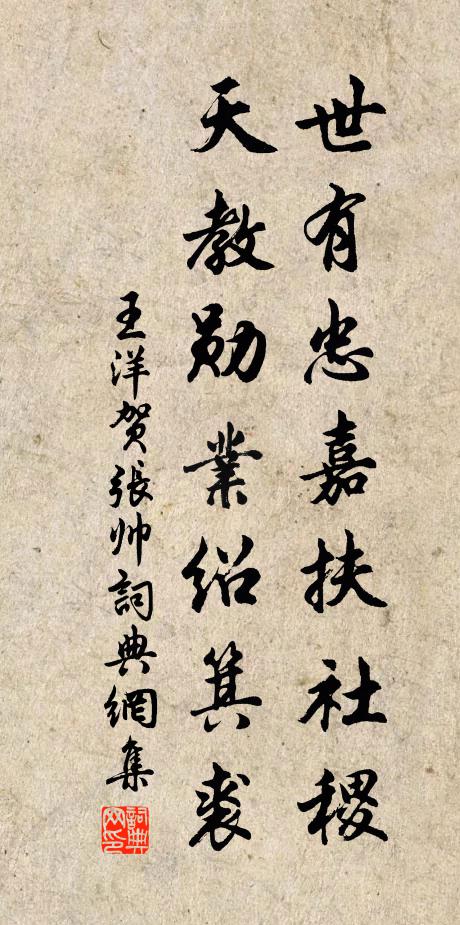 世有忠嘉扶社稷
天教勋業绍箕裘
王洋贺張帅詞典網集
詞典网印